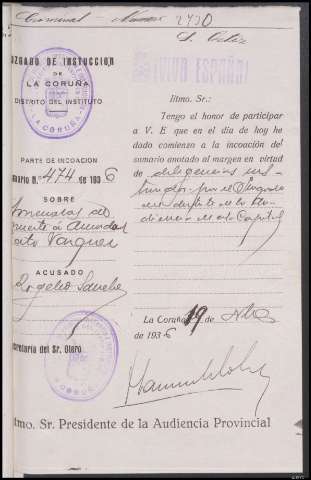 2730
¡VIVA ESPAÑA!
JUZGADO DE INSTRUCCIÓN
DE
LA CORUÑA
DISTRITO DEL INSTITUTO
LA CORUÑA
PARTE DE INCOACIÓN
Sumario N.º 474 de 1936
SOBRE
amenazas de
muerte a
Vazquez
ACUSADO
Rogelio Sanchez
Secretaría del Sr. Otero
Iltmo. Sr.:
Tengo el honor de participar
a V. E que en el día de hoy he
dado comienzo a la incoación del
sumario anotado al margen en virtud
de diligencias ins-
truidas por el Juzgado
de la Au-
diencia de esta Capital
La Coruña 19 de
de 1936
Iltmo. Sr. Presidente de la Audiencia Provincial